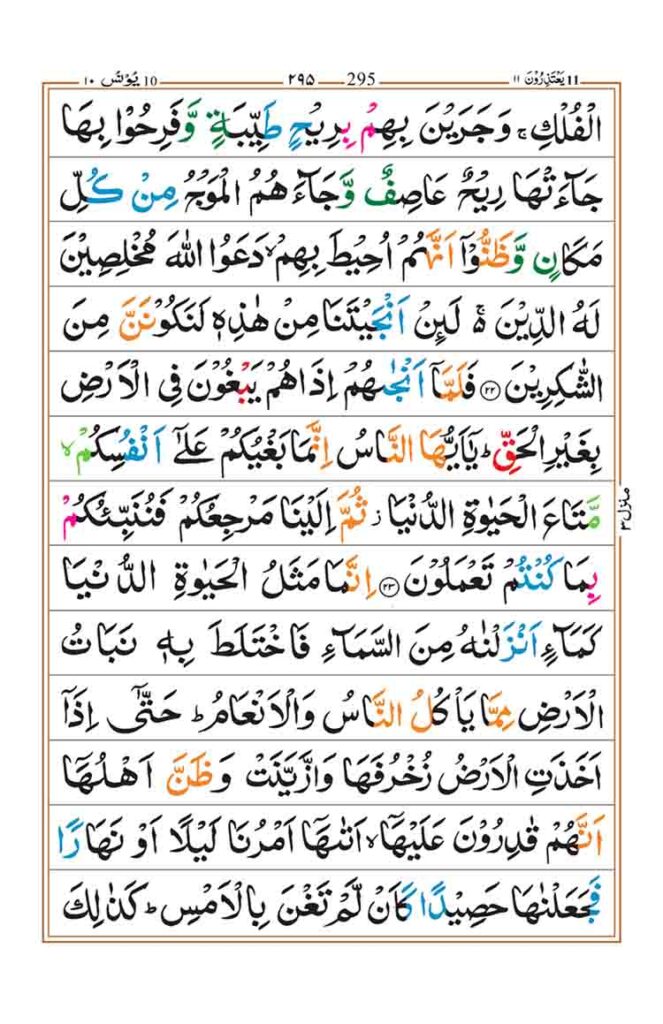 ١٠ يُوْنُس 10 ٢٩٥ 295 11 يَعْتَذِرُوْنَ ١١
الْفُلْكِ ۚ وَجَرَيْنَ بِهِمْ بِرِيْحٍ طَيِّبَةٍ وَّفَرِحُوْا بِهَا
جَآءَتْهَا رِيْحٌ عَاصِفٌ وَّجَآءَهُمُ الْمَوْجُ مِنْ كُلِّ
مَكَانٍ وَّظَنُّوْٓا اَنَّهُمْ اُحِيْطَ بِهِمْ ۙ دَعَوُا اللّٰهَ مُخْلِصِيْنَ
لَهُ الدِّيْنَ ەۚ لَئِنْ اَنْجَيْتَنَا مِنْ هٰذِهٖ لَنَكُوْنَنَّ مِنَ
الشّٰكِرِيْنَ ﴿٢٢﴾ فَلَمَّآ اَنْجٰىهُمْ اِذَا هُمْ يَبْغُوْنَ فِى الْاَرْضِ
بِغَيْرِ الْحَقِّ ؕ يٰٓاَيُّهَا النَّاسُ اِنَّمَا بَغْيُكُمْ عَلٰٓى اَنْفُسِكُمْ ۙ
مَّتَاعَ الْحَيٰوةِ الدُّنْيَا ز ثُمَّ اِلَيْنَا مَرْجِعُكُمْ فَنُنَبِّئُكُمْ
بِمَا كُنْتُمْ تَعْمَلُوْنَ ﴿٢٣﴾ اِنَّمَا مَثَلُ الْحَيٰوةِ الدُّنْيَا
كَمَآءٍ اَنْزَلْنٰهُ مِنَ السَّمَآءِ فَاخْتَلَطَ بِهٖ نَبَاتُ
الْاَرْضِ مِمَّا يَاْكُلُ النَّاسُ وَالْاَنْعَامُ ؕ حَتّٰٓى اِذَآ
اَخَذَتِ الْاَرْضُ زُخْرُفَهَا وَازَّيَّنَتْ وَظَنَّ اَهْلُهَآ
اَنَّهُمْ قٰدِرُوْنَ عَلَيْهَآ ۙ اَتٰىهَآ اَمْرُنَا لَيْلًا اَوْ نَهَارًا
فَجَعَلْنٰهَا حَصِيْدًا كَاَنْ لَّمْ تَغْنَ بِالْاَمْسِ ؕ كَذٰلِكَ
منزل ٣